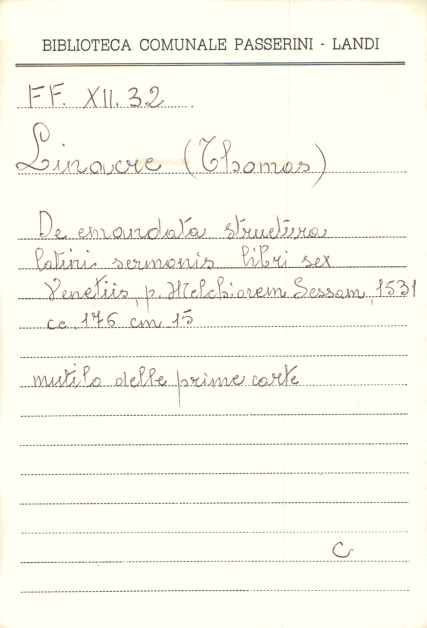 BIBLIOTECA COMUNALE PASSERINI - LANDI
FF. XII. 32
Linacre (Thomas)
De emandata structura
latini sermonis libri sex
Venetiis, p. Melchiorem Sessam, 1531
cc. 176 cm 15
mutilo delle prime carte
C